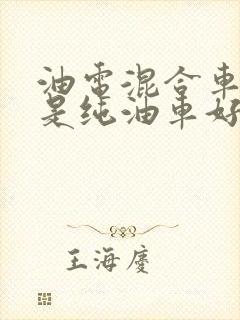 油電混合車
是纯油車好
王海慶